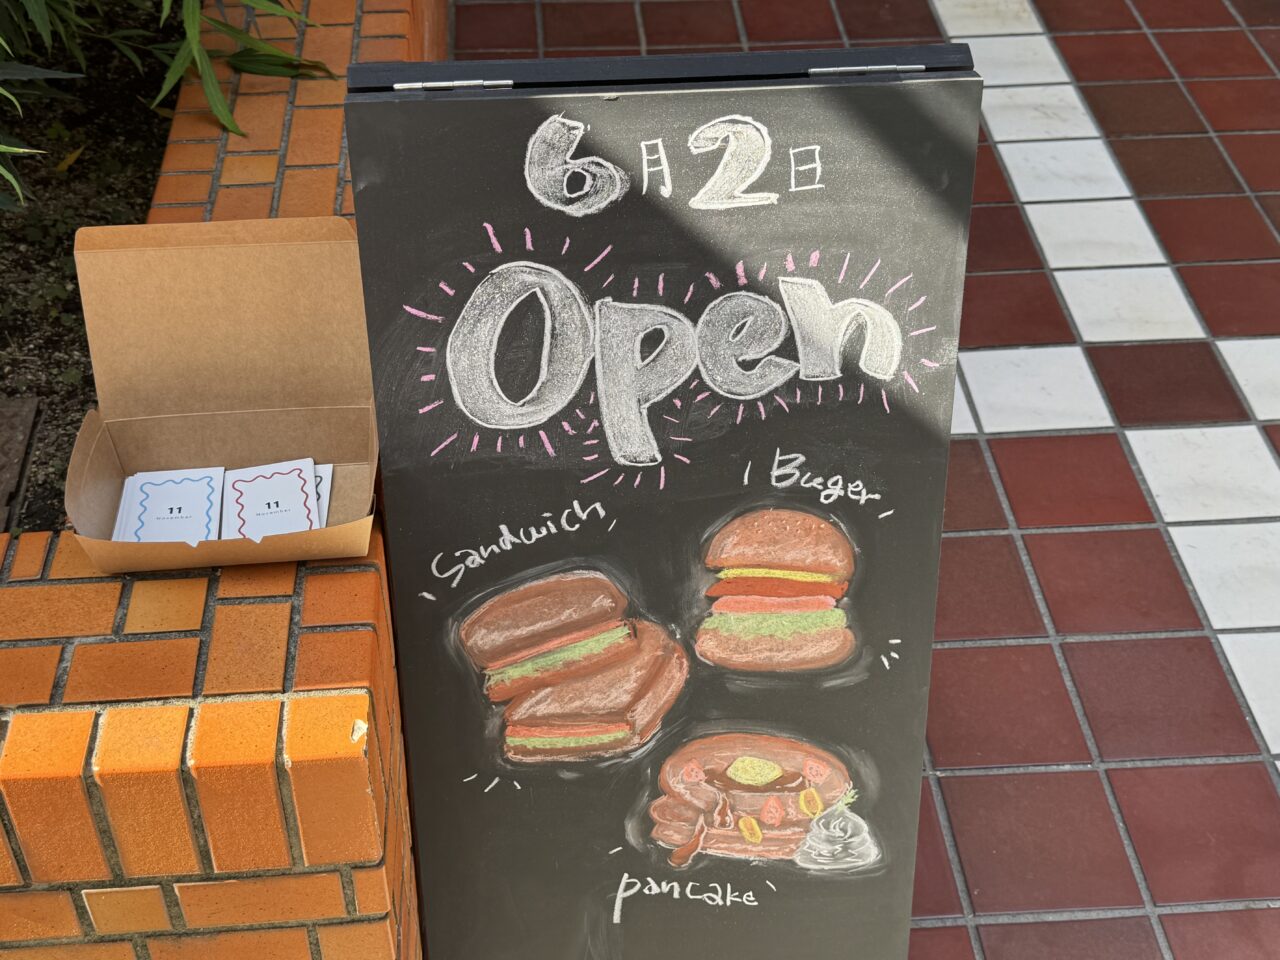 6月2日
Open
Buger
Sandwich
pancake
11
November
11
November